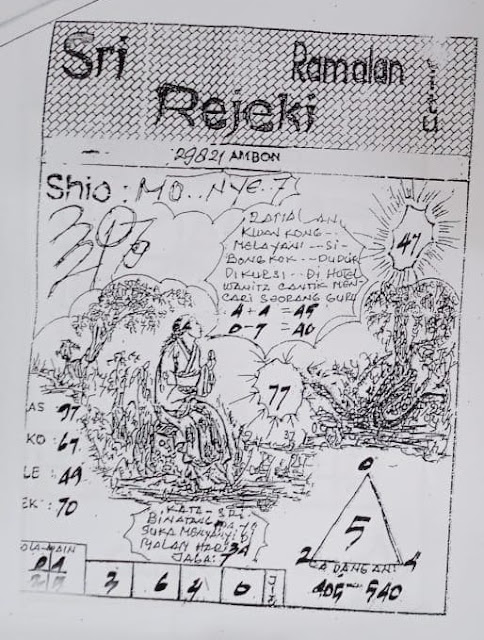 Sri
Ramalan
Rejeki
29821 AMBON
Shio : MO..NYE..T
RAMALAN
KWAN KONG--
MELAYANI--SI-
BONGKOK...DUDUK
DIKURSI...DI HOTEL
WANITA CANTIK MEN-
CARI SEORANG GURU
4 + 4 = 49
0 - 7 = 40
47
77
AS 97
KO : 67
LE : 49
EK : 70
KATA-SRI
BINATANG
SUKA MENYANYI DI
MALAM HARI
JAGA:
0
5
2
4
CADANGAN
405-540
OLA-MAIN
3 6 4 0